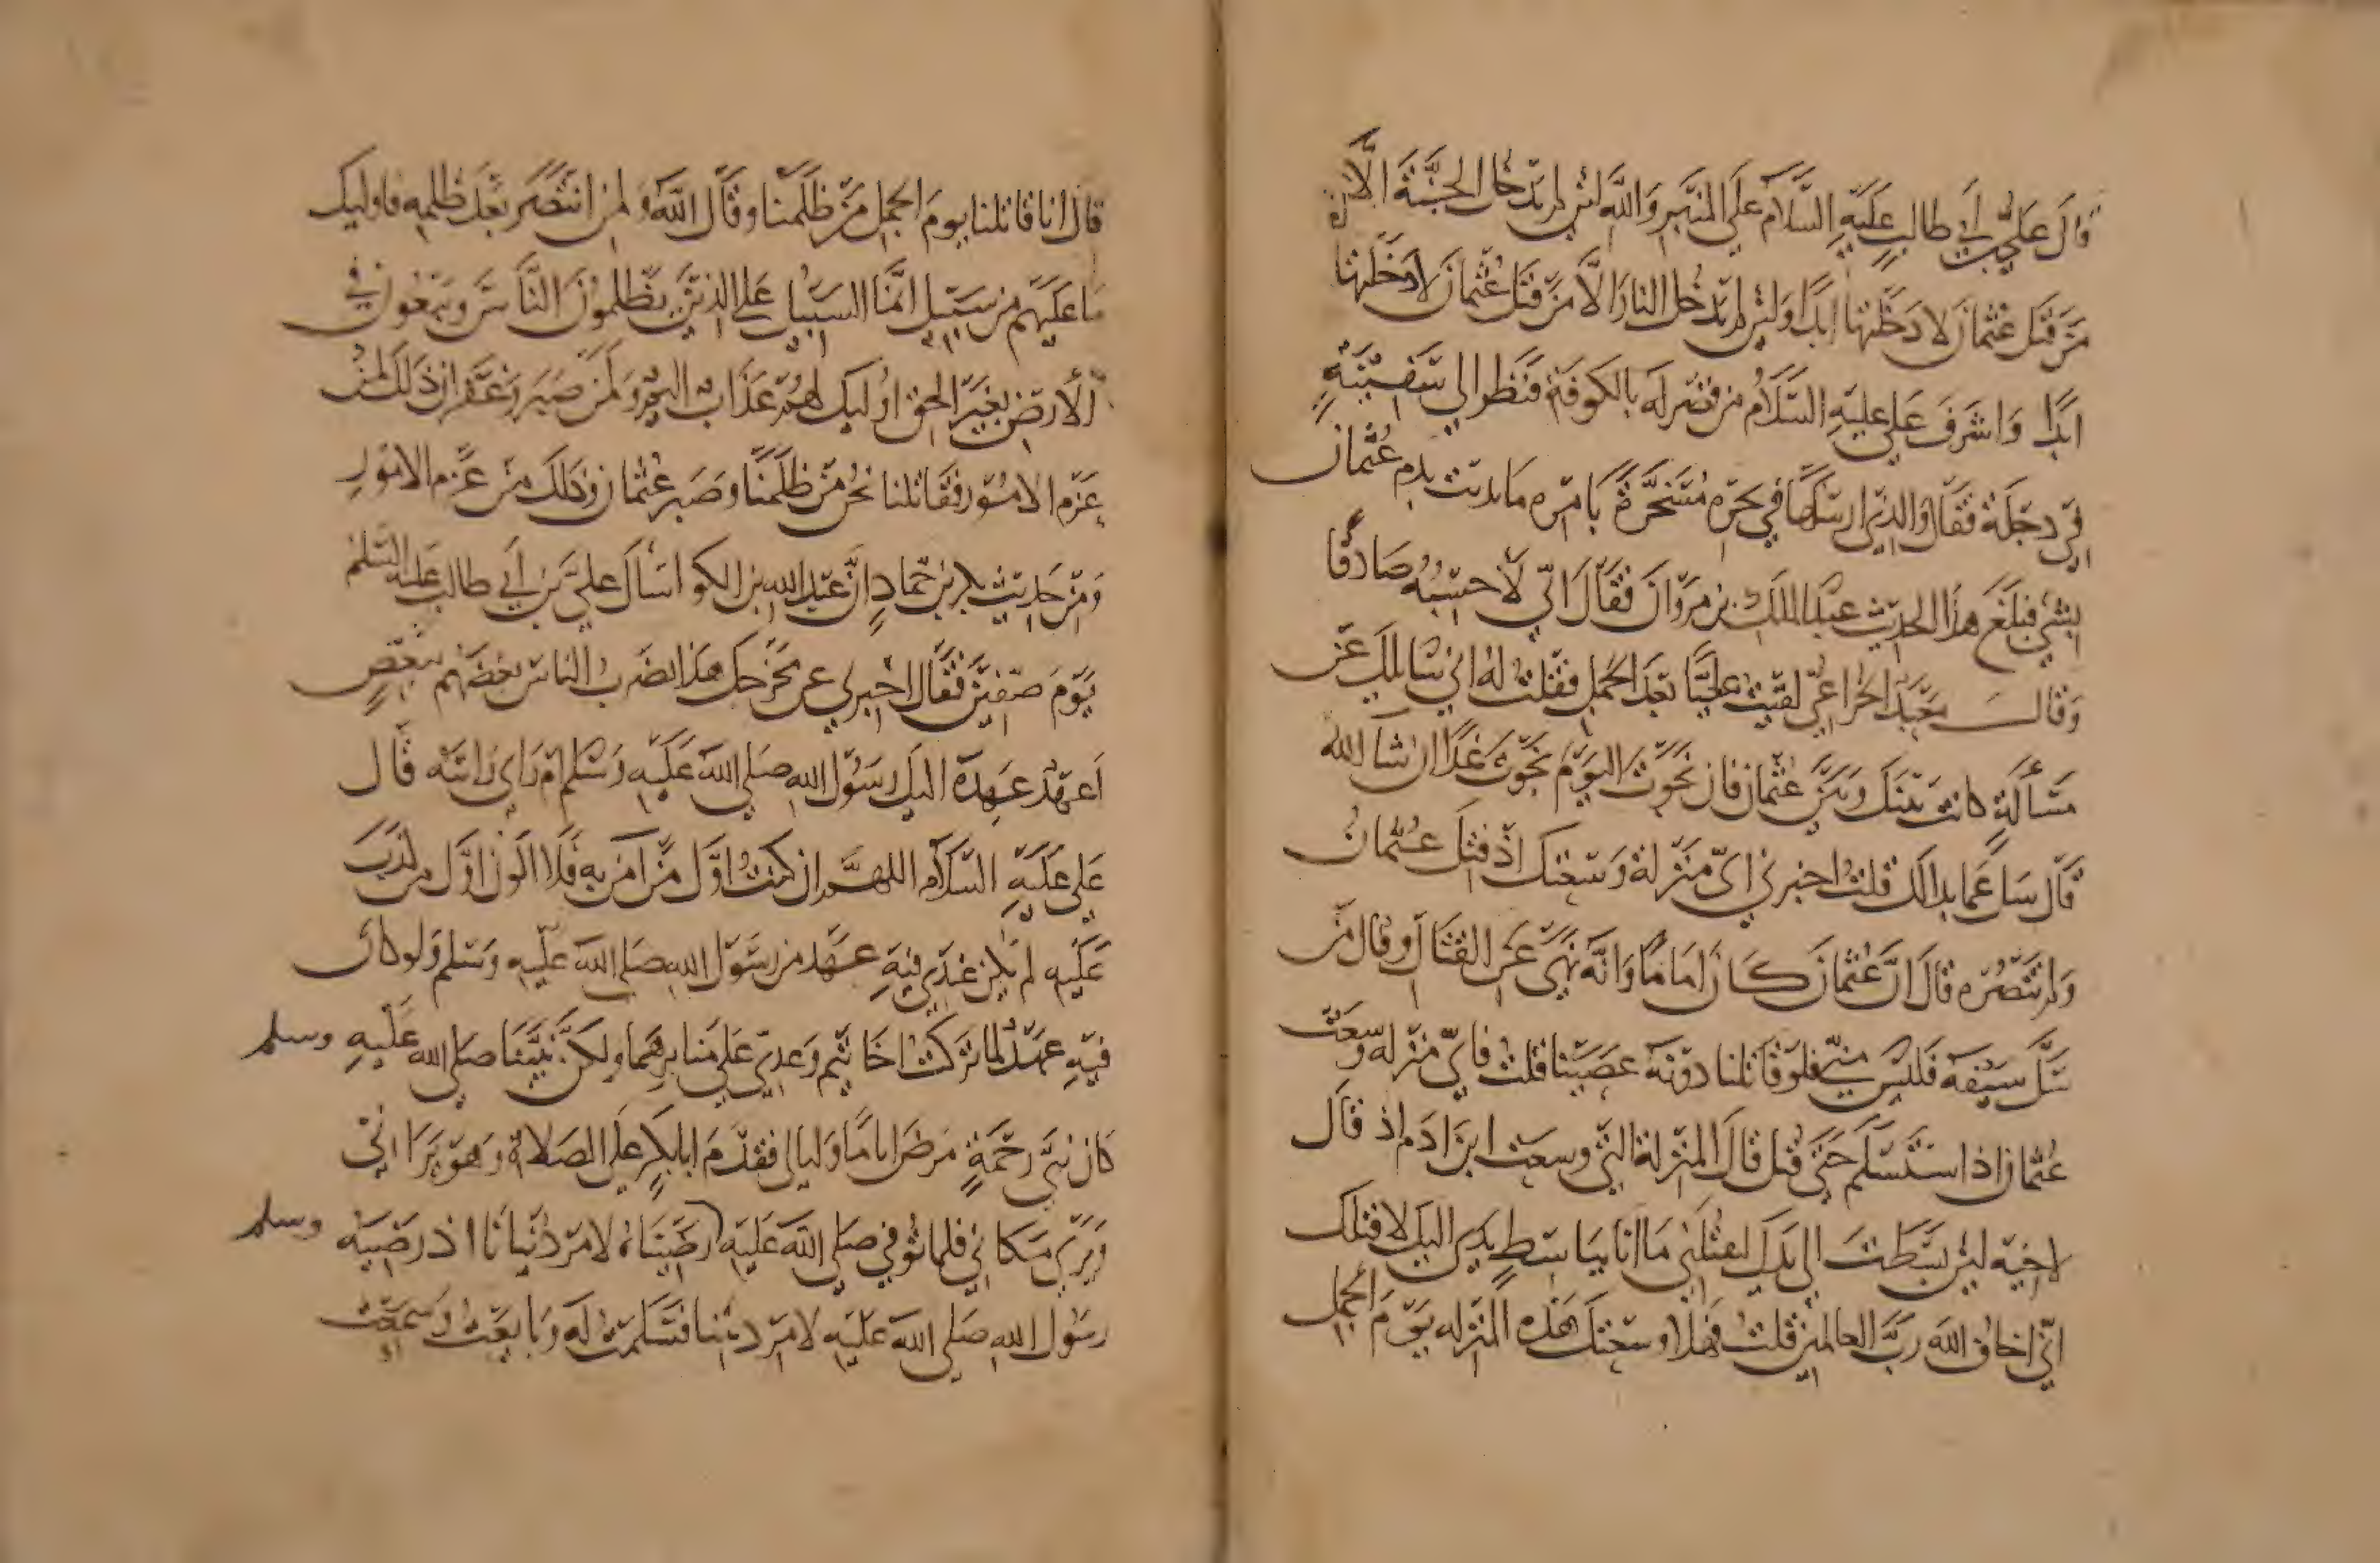 قال علي بن أبي طالب عليه السلام على المنبر والله لئن لم يدخل الجنة إلا
من قتل عثمان لا دخلتها ابدا ولئن لم يدخل النار الا من قتل عثمان لا دخلتها
ابدا واشرف علي عليه السلام من قصر له بالكوفة فنظر الى سفينة
في دجلة فقال والذي ارسلها في بحره مسخرة بامره ما بديت بدم عثمان
بشي فبلغ هذا الحديث عبد الملك بن مروان فقال اني لا حسبه صادقا
وقال معبد الخزاعي لقيت عليا بعد الجمل فقلت له اني سائلك عن
مسألة كانت منك ومن عثمان فان نجوت اليوم نجوت غدا ان شا الله
قال سل عما بدا لك قلت اخبرني اي منزلة وسعتك اذ قتل عثمان
ولم تنصره قال ان عثمان كان اماما وانه نهى عن القتال وقال من
سل سيفه فليس مني فلو قاتلنا دونه عصينا قلت فاي منزله وسعت
عثمان اذ استسلم حتى قتل قال المنزلة التي وسعت ابن ادم اذ قال
لاخيه لئن بسطت الي يدك لتقتلني ما انا بباسط يدي اليك لاقتلك
اني اخاف الله رب العالمين قلت فهلا وسعتك هذه المنزله يوم الجمل
قال انا قاتلنا يوم الجمل من ظلمنا وقال الله ولمن انتصر بعد ظلمه فاوليك
ما عليهم من سبيل انما السبيل على الذين يظلمون الناس ويبغون في
الارض بغير الحق اوليك لهم عذاب اليم ولمن صبر وغفر ان ذلك لمن
عزم الامور فقاتلنا نحن من ظلمنا وصبر عثمان وذلك من عزم الامور
ومن حديث بكر بن حماد ان عبد الله بن الكوا سأل علي بن أبي طالب عليه السلم
يوم صفين فقال اخبرني عن مخرجك هذا تضرب الناس بعضهم ببعض
اعهد عهدة اليك رسول الله صلى الله عليه وسلم ام راي رايته قال
علي عليه السلام اللهم ان كنت اول من آمن به فلا اكون اول من كذب
عليه لم يكن عندي فيه عهد من رسول الله صلى الله عليه وسلم ولو كان
فيه عهد لما تركت اخا تيم وعدي على منابرهما ولكن نبينا صلى الله عليه وسلم
كان نبي رحمة مرض اياما وليالي فقدم ابا بكر على الصلاة وهو يراني
ويرى مكاني فلما توفي صلى الله عليه وسلم رضيناه لامر دنيانا اذ رضيه
رسول الله صلى الله عليه لامر ديننا فسلمت له وبايعت وسمعت